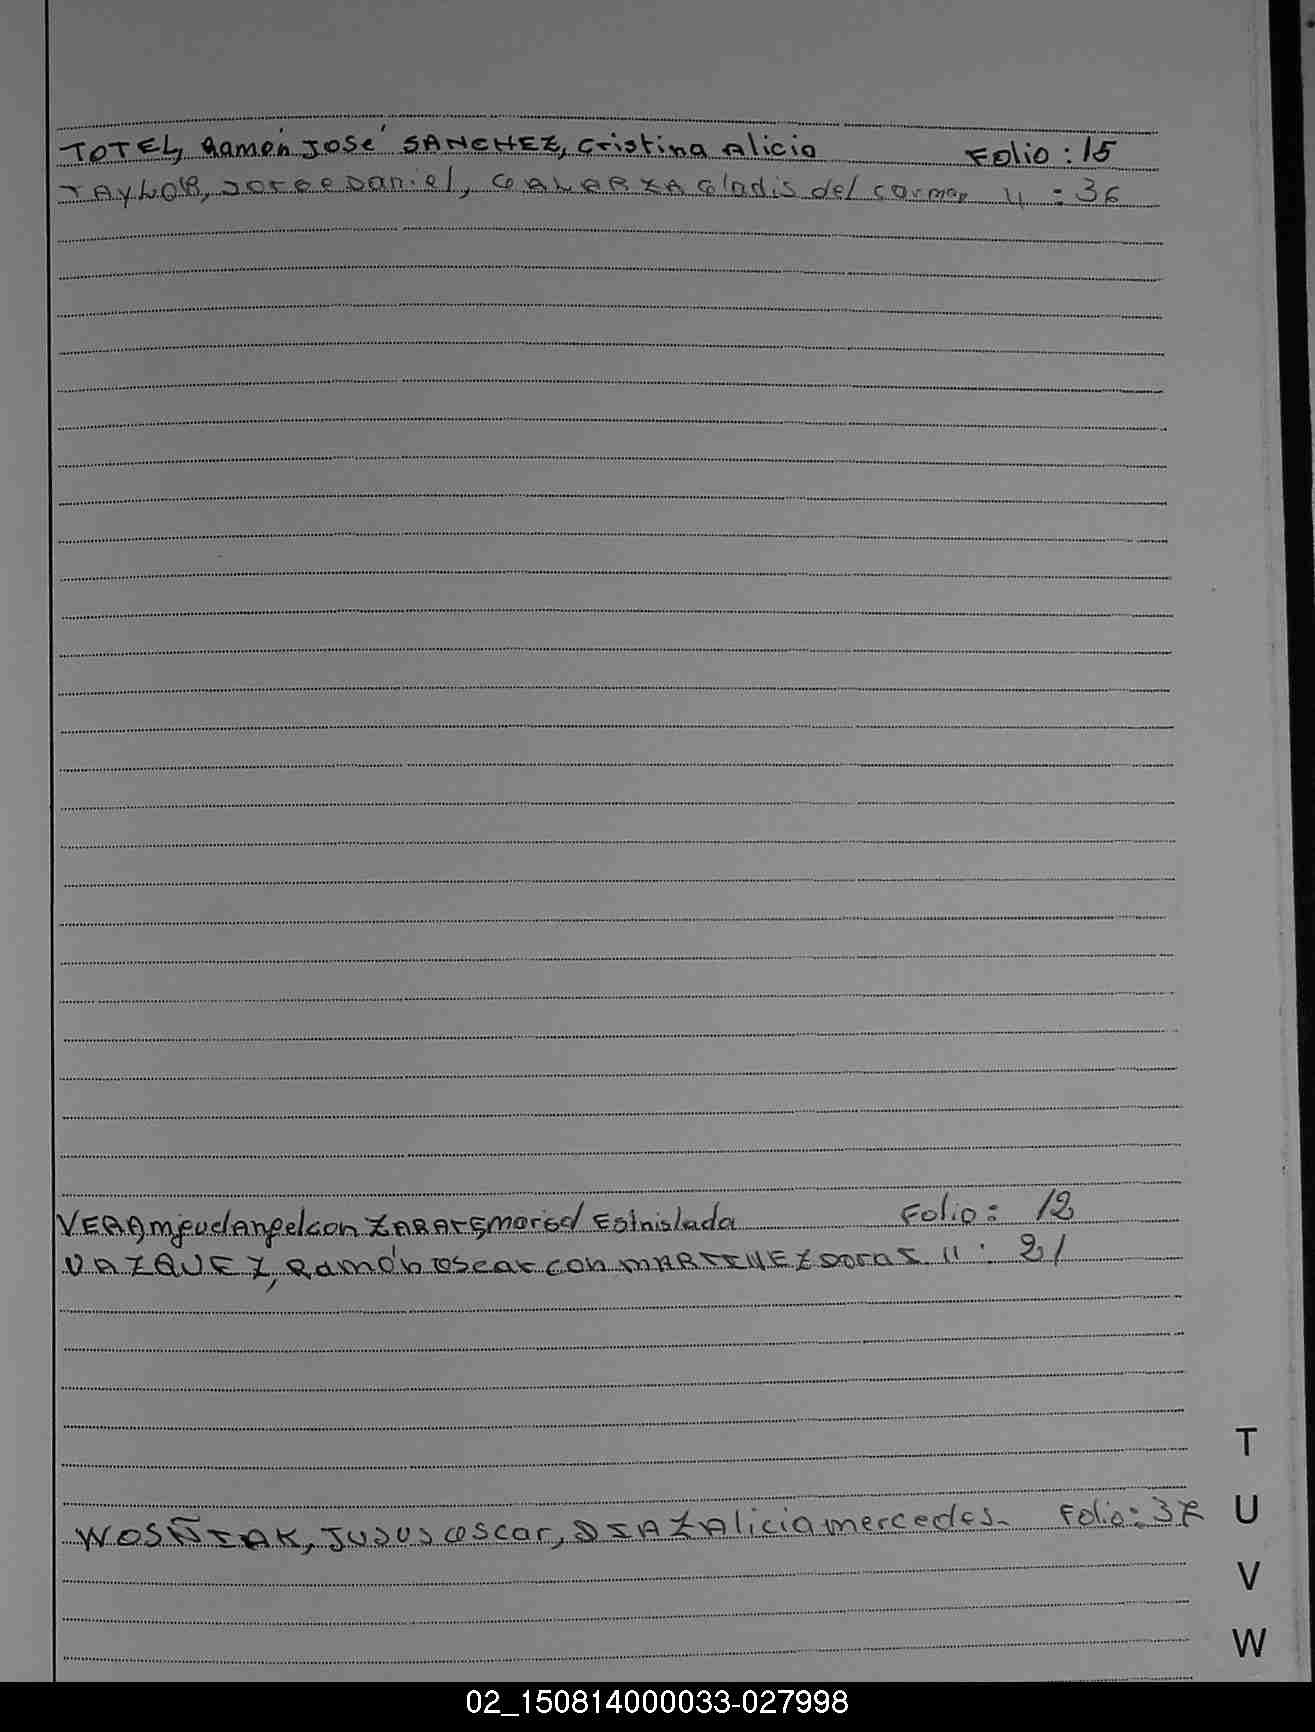 TOTEL, Ramón José SANCHEZ, Cristina Alicia Folio : 15
TAYLOR, JORGE Daniel, GALARZA Gladis del Carmen 11 : 36
VERA, Miguel Angel con ZARATE, Marisa Estnislada Folio : 12
VAZQUEZ, Ramón Oscar con MARTINEZ 11 : 21
WOSÑIAK, JUSUS Oscar, DIAZ Alicia Mercedes. Folio : 37
T
U
V
W
02_150814000033-027998